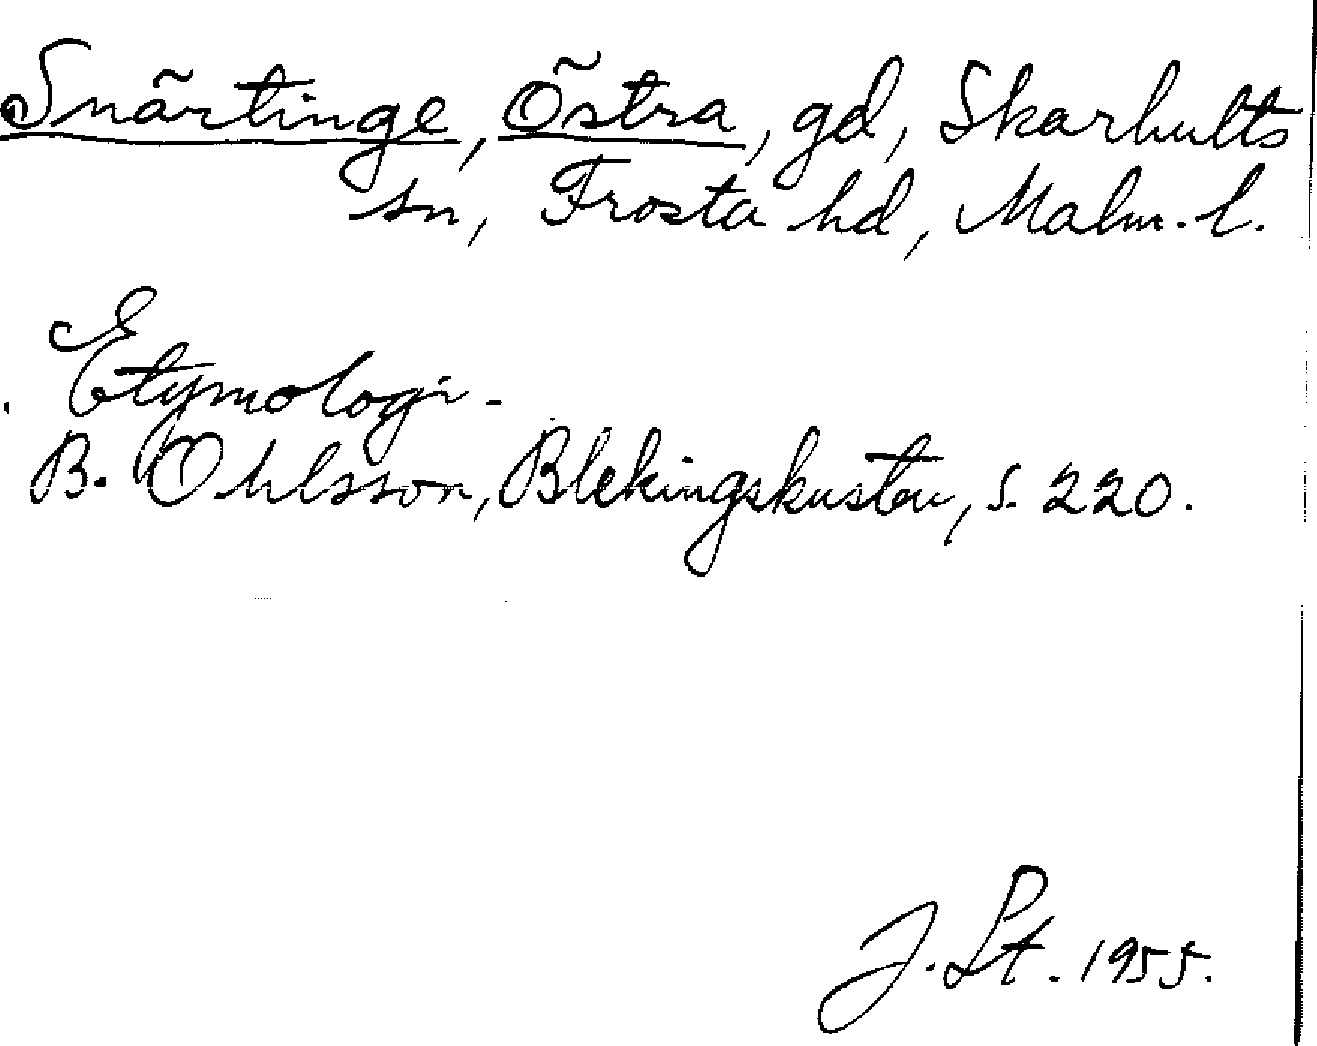 Snärtinge, Östra, gd, Skarhults
sn, Frosta hd, Malm. l.
Etymologi -
B. Ohlsson, Blekingskusten, s. 220.
J. St. 1955.